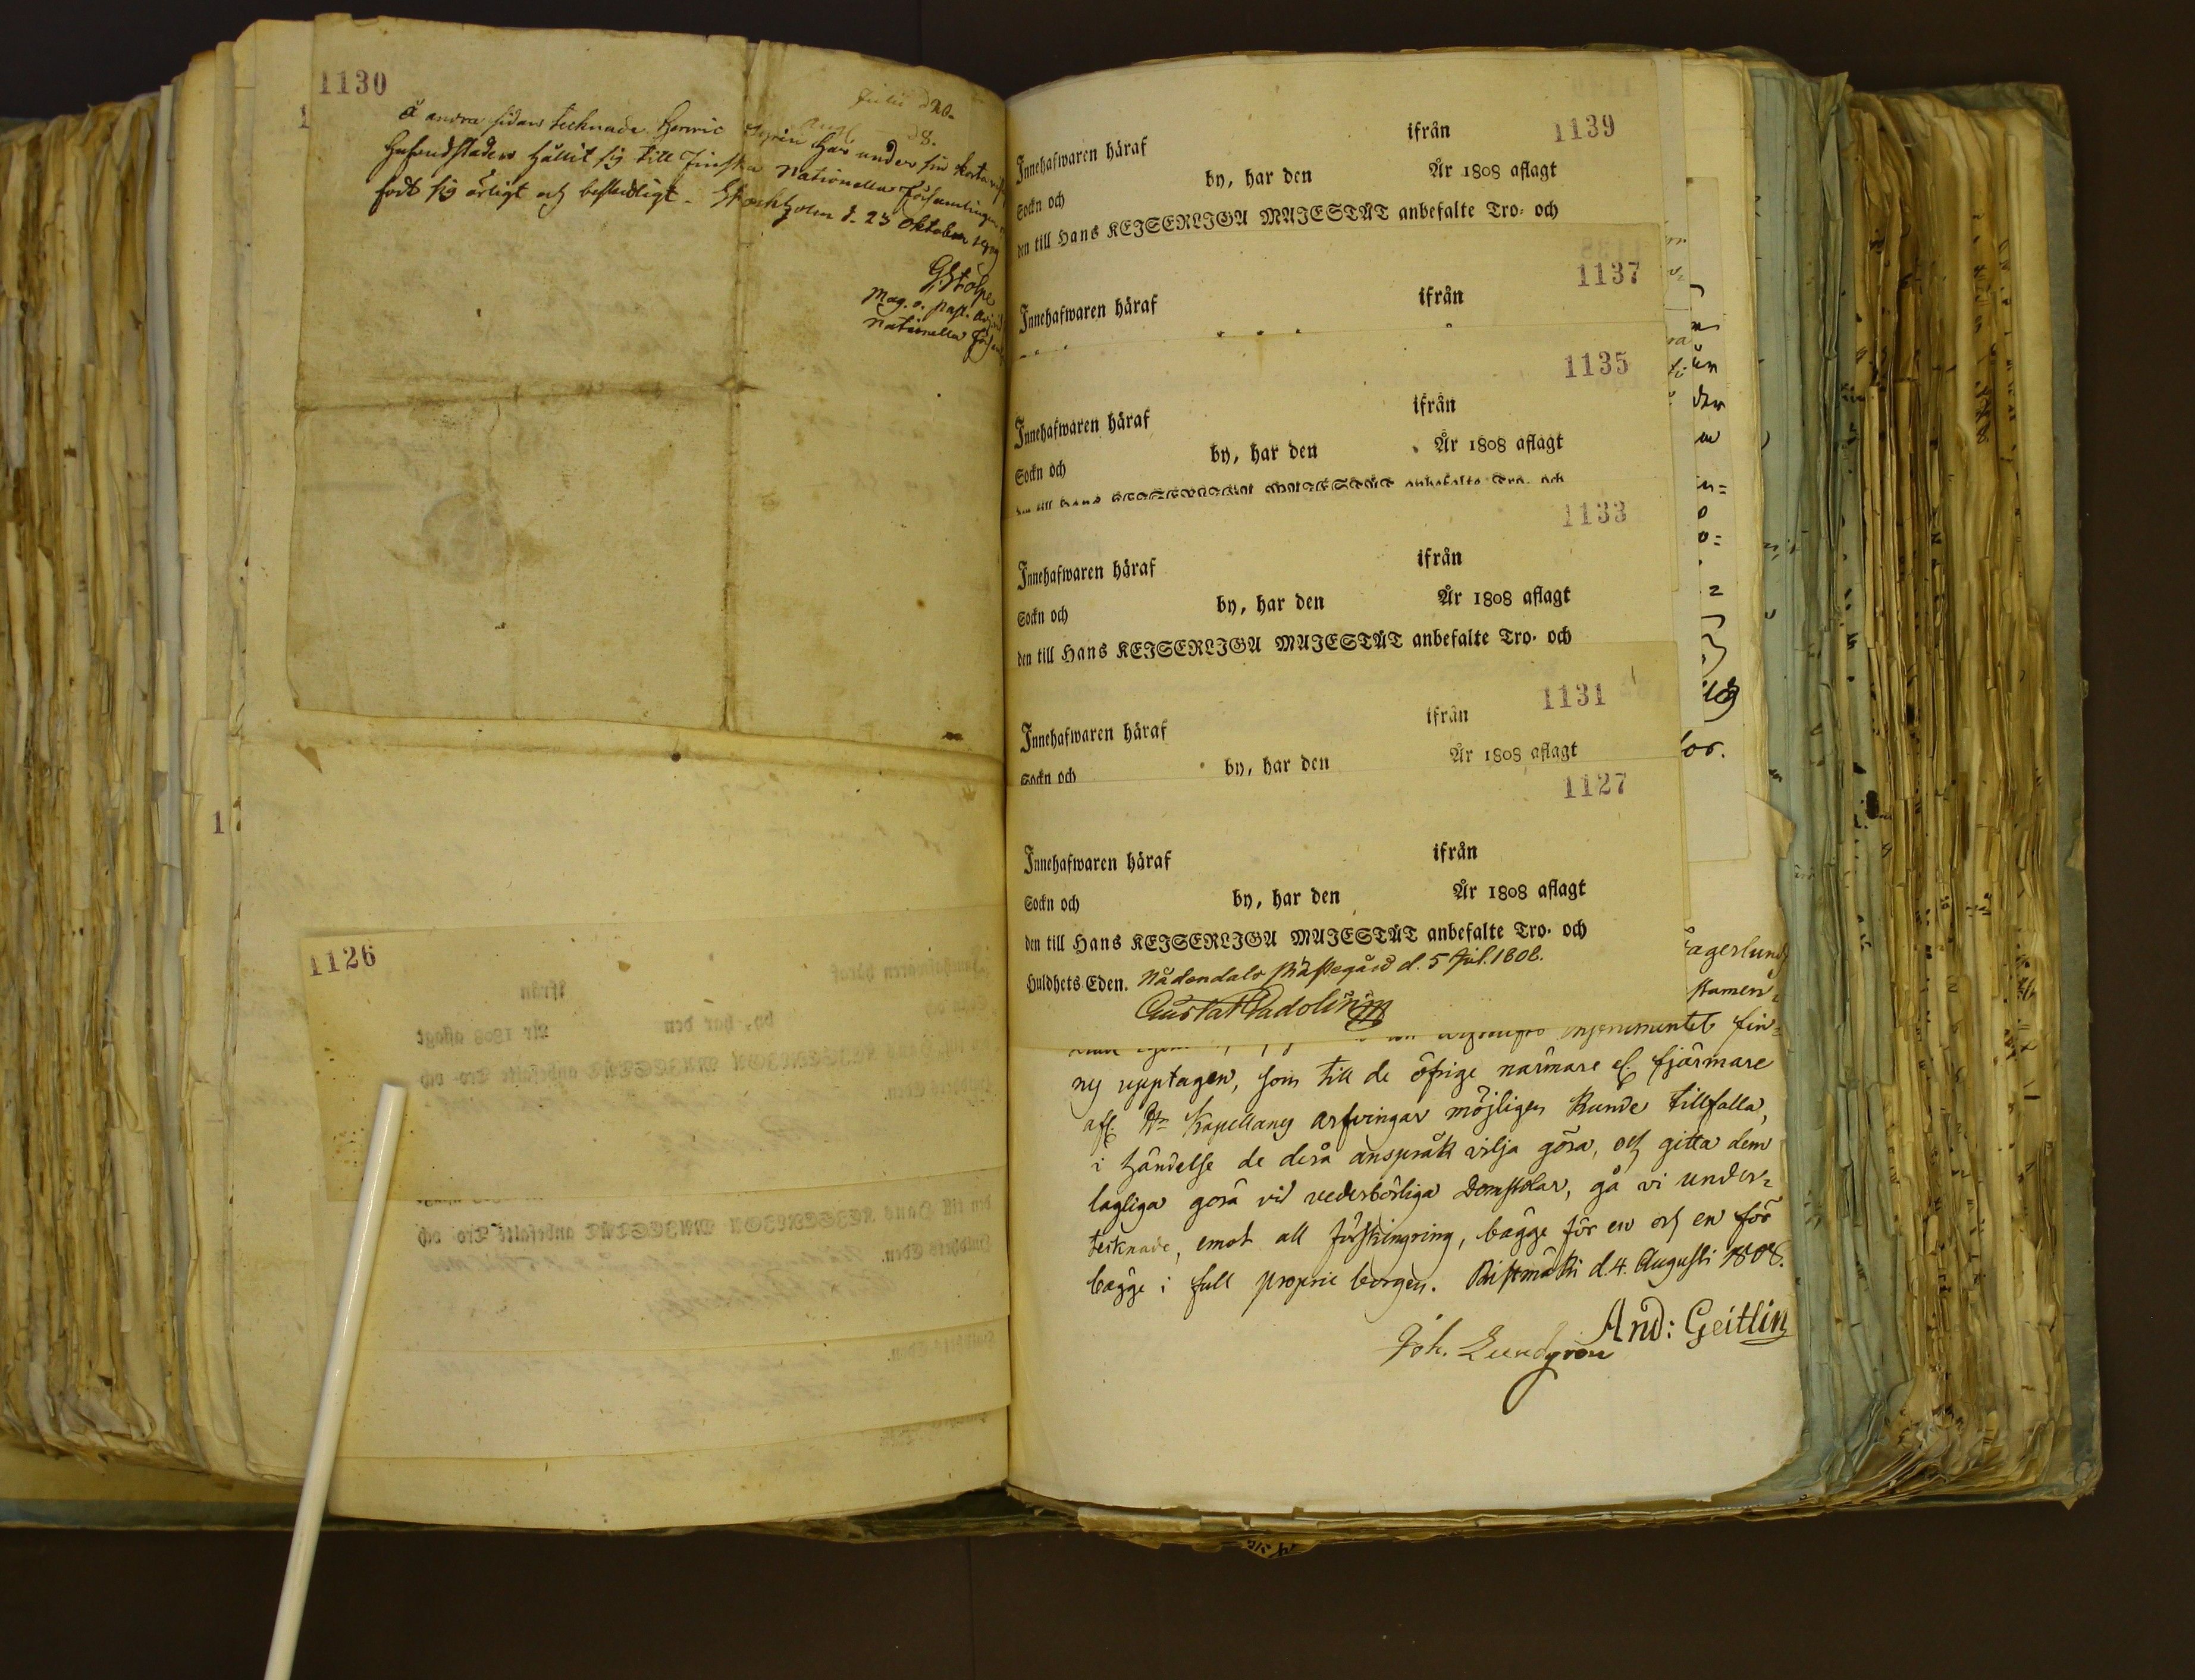 1130
Julii d 20.
Aug d 8.
å andra sidan tecknade Henric har under sin korta
hufvudstaden hållit sig till Finska Nationella Församlingen
födt sig ärligt och beskedligt. Stockholm d. 23 Oktober
G. Stolpe
Mag. o. Past. Adj. vid
Nationella Förs
1126
1139
Innehafwaren häraf ifrån
Sockn och by, har den År 1808 aflagt
den till Hans KEJSERLIGA MAJESTÄT anbefalte Tro- och
1137
Innehafwaren häraf ifrån
1135
Innehafwaren häraf ifrån
Sockn och by, har den År 1808 aflagt
den till Hans KEJSERLIGA MAJESTÄT anbefalte Tro- och
1133
Innehafwaren häraf ifrån
Sockn och by, har den År 1808 aflagt
den till Hans KEJSERLIGA MAJESTÄT anbefalte Tro- och
1131
Innehafwaren häraf ifrån
Sockn och by, har den År 1808 aflagt
1127
Innehafwaren häraf ifrån
Sockn och by, har den År 1808 aflagt
den till Hans KEJSERLIGA MAJESTÄT anbefalte Tro- och
Huldhets Eden. Nådendals Prästegård d. 5 Jul. 1808.
Gustaf Gadolin
agerlund
stamen=
fin=
ny upptagen, som till de öfrige närmare el. fjärmare
afl. Hr Kapellans arfvingar möjligen kunde tillfalla,
i händelse de derå anspråk vilja göra, och gitta dem
lagliga göra vid vederbörliga Domstolar, gå vi under=
tecknade, emot all förskingring, bägge för en och en för
bägge i full proprie borgen. Ristmäki d. 4. Augusti 1808.
And: Geitlin
Joh. Lundgren